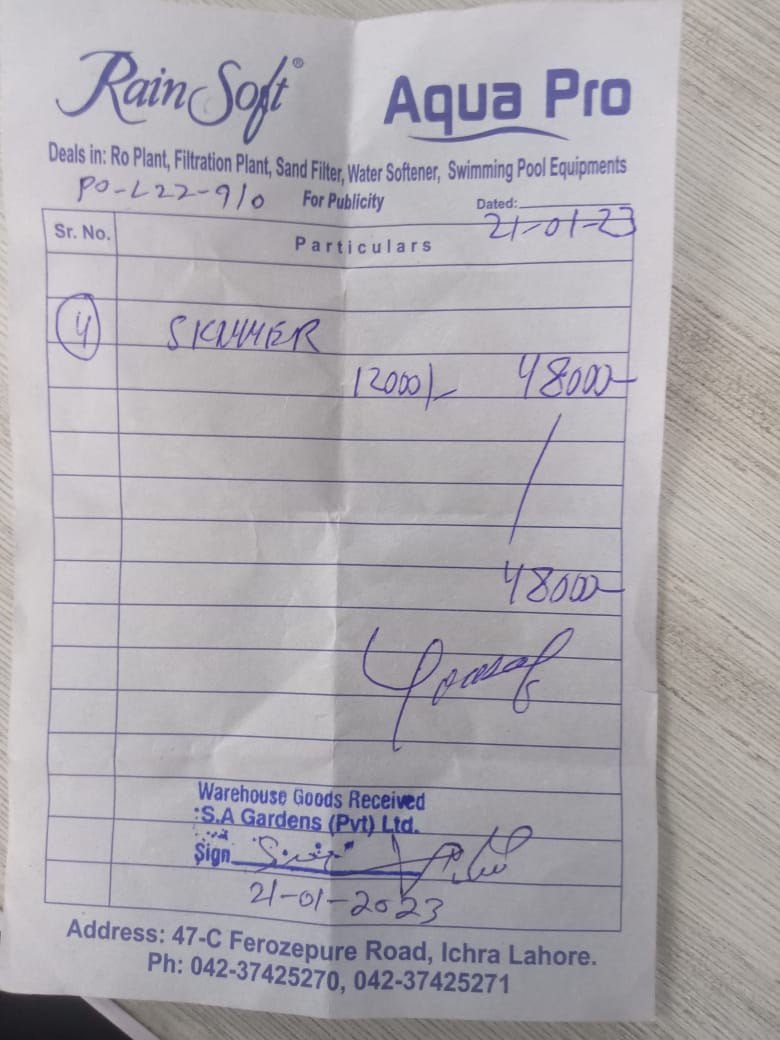 Rain Soft® Aqua Pro
Deals in: Ro Plant, Filtration Plant, Sand Filter, Water Softener, Swimming Pool Equipments
PO-L22-910 For Publicity Dated: 21-01-23
Sr. No. Particulars
4 SKIMMER
12000/- 48000
48000
Yousaf
Warehouse Goods Received
:S.A Gardens (Pvt) Ltd.
Sign
21-01-2023
Address: 47-C Ferozepure Road, Ichra Lahore.
Ph: 042-37425270, 042-37425271